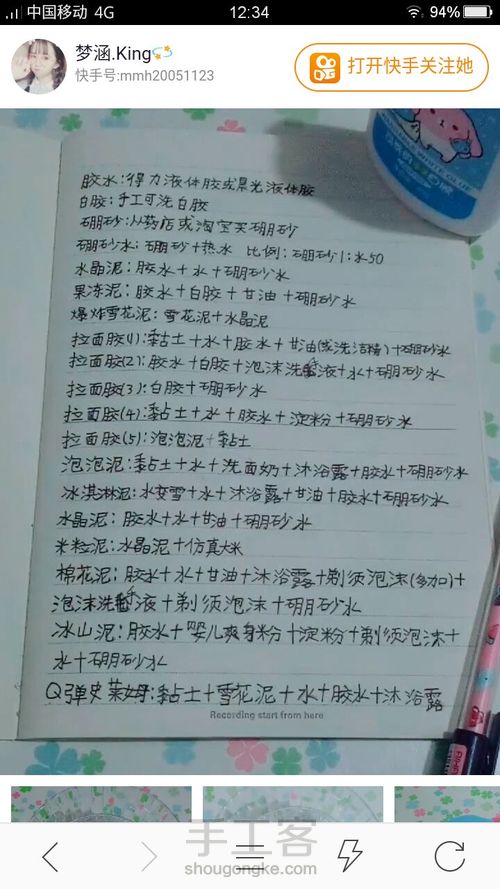 中国移动 4G 12:34 94%
梦涵.King
快手号:mmh20051123
打开快手关注她
胶水:得力液体胶或晨光液体胶
白胶:手工可洗白胶
硼砂:从药店或淘宝买硼砂
硼砂水:硼砂+热水 比例:硼砂1:水50
水晶泥:胶水+水+硼砂水
果冻泥:胶水+白胶+甘油+硼砂水
爆炸雪花泥:雪花泥+水晶泥
拉面胶(1):黏土+水+胶水+甘油(或洗洁精)+硼砂水
拉面胶(2):胶水+白胶+泡沫洗手液+水+硼砂水
拉面胶(3):白胶+硼砂水
拉面胶(4):黏土+水+胶水+淀粉+硼砂水
拉面胶(5):泡泡泥+黏土
泡泡泥:黏土+水+洗面奶+沐浴露+胶水+硼砂水
冰淇淋泥:水变雪+水+沐浴露+甘油+胶水+硼砂水
水晶泥:胶水+水+甘油+硼砂水
米粒泥:水晶泥+仿真大米
棉花泥:胶水+水+甘油+沐浴露+剃须泡沫(多加)+
泡沫洗手液+剃须泡沫+硼砂水
冰山泥:胶水+婴儿爽身粉+淀粉+剃须泡沫+
水+硼砂水
Q弹史莱姆:黏土+雪花泥+水+胶水+沐浴露
Recording start from here
手工客
shougongke.com